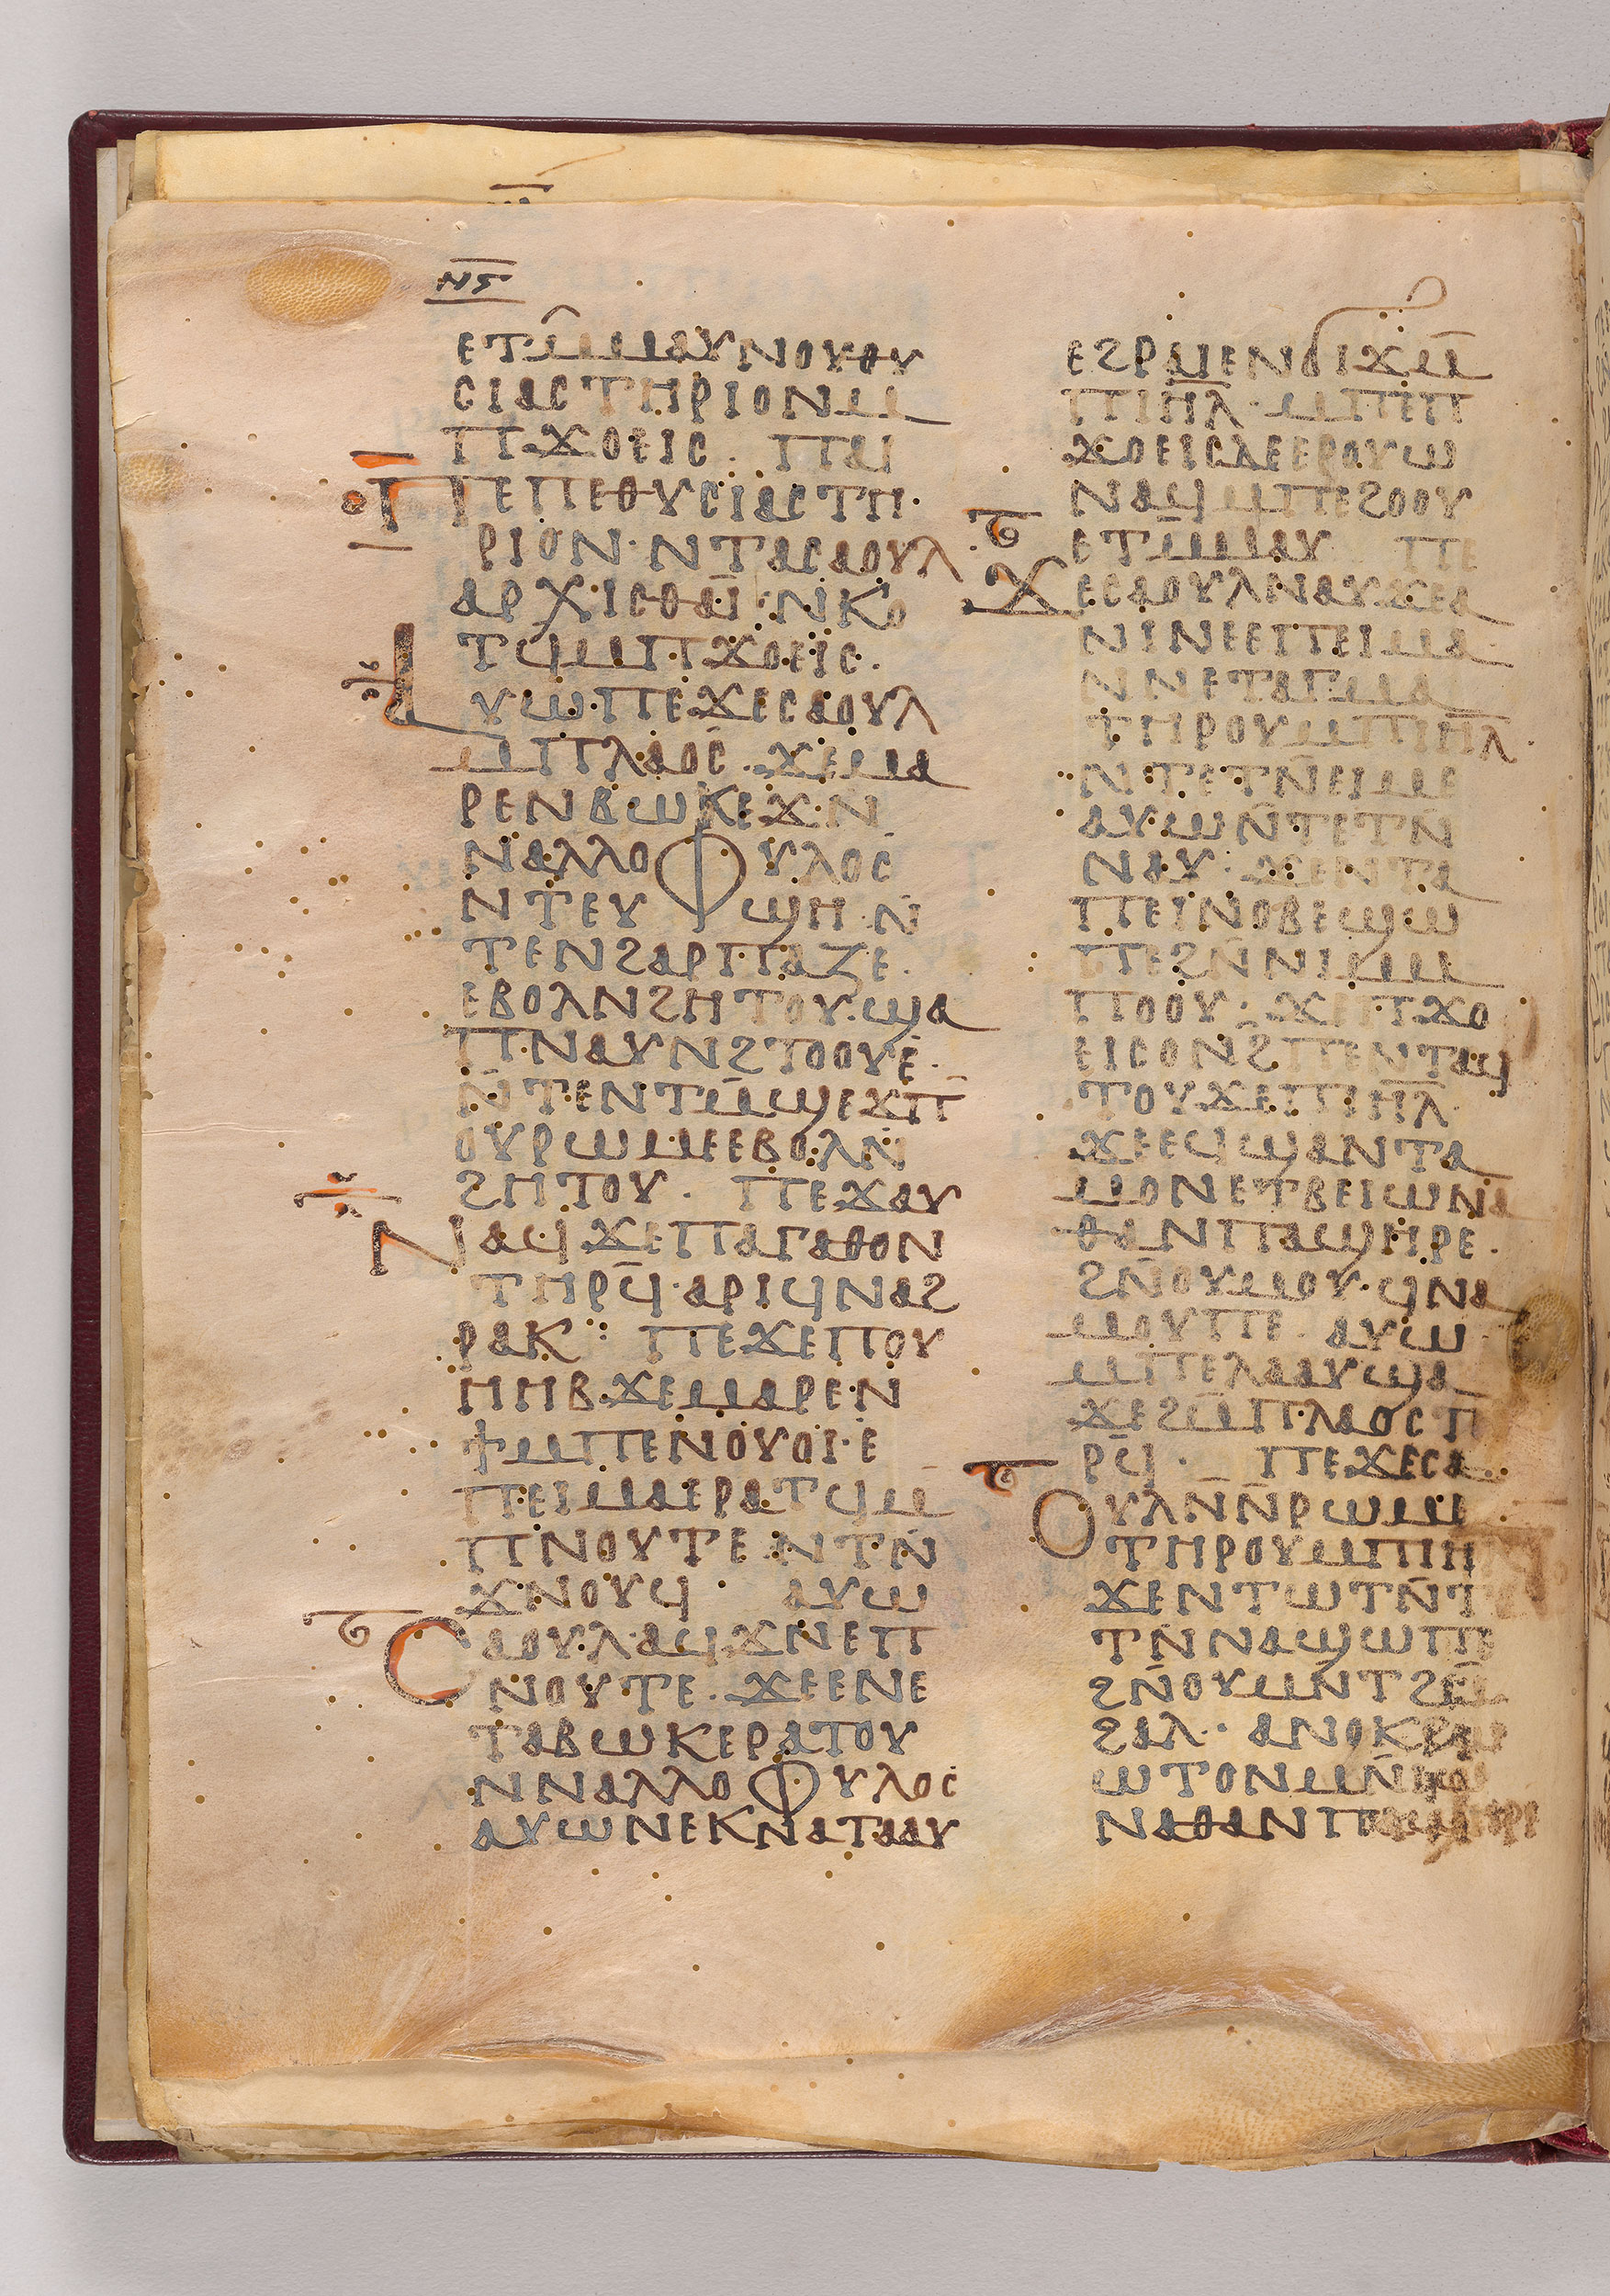 ⲛⲋ
ⲉⲧⲙ̄ⲙⲁⲩⲛⲟⲩⲑⲩ
ⲥⲓⲁⲥⲧⲏⲣⲓⲟⲛⲙ
ⲡϫⲟⲉⲓⲥ· ⲡⲁⲓ
ⲡⲉⲡⲉⲑⲩⲥⲓⲁⲥⲧⲏ
ⲣⲓⲟⲛ·ⲛⲧⲁⲥⲁⲟⲩⲗ
ⲁⲣⲭⲓⲥⲑⲁⲓ ⲛⲕⲟ
ⲧϥⲙⲡϫⲟⲉⲓⲥ·
ⲁⲩⲱⲡⲉϫⲉⲥⲁⲟⲩⲗ
ⲙⲡⲗⲁⲟⲥ·ϫⲉⲙⲁ
ⲣⲉⲛⲃⲱⲕⲉϫⲛ
ⲛⲁⲗⲗⲟⲫⲩⲗⲟⲥ
ⲛⲧⲉⲩϣⲏ ⲛ̄
ⲧⲉⲛϩⲁⲣⲡⲁⲍⲉ·
ⲉⲃⲟⲗⲛϩⲏⲧⲟⲩ·ϣⲁ
ⲡⲛⲁⲩⲛϩⲧⲟⲟⲩⲉ·
ⲛ̄ⲧⲉⲛⲧⲙ̄ϣⲉϫⲡ̄
ⲟⲩⲣⲱⲙⲉⲉⲃⲟⲗⲛ
ϩⲏⲧⲟⲩ· ⲡⲉϫⲁⲩ
ⲛⲁϥϫⲉⲡⲁⲅⲁⲑⲟⲛ
ⲧⲏⲣϥ̄·ⲁⲣⲓϥⲛⲁϩ
ⲣⲁⲕ: ⲡⲉϫⲉⲡⲟⲩ
ⲏⲏⲃϫⲉⲙⲁⲣⲉⲛ
ϯⲙⲡⲉⲛⲟⲩⲟⲓ·ⲉ
ⲡⲉⲓⲙⲁⲉⲣⲁⲧϥⲙ̄
ⲡⲛⲟⲩⲧⲉ ⲛⲧⲛ̄
ϫⲛⲟⲩϥ· ⲁⲩⲱ
ⲥⲁⲟⲩⲗ·ⲁϥϫⲛⲉⲡ
ⲛⲟⲩⲧⲉ·ϫⲉⲉⲛⲉ
ⲧⲁⲃⲱⲕⲉⲣⲁⲧⲟⲩ
ⲛⲛⲁⲗⲗⲟⲫⲩⲗⲟⲥ
ⲁⲩⲱⲛⲉⲕⲛⲁⲧⲁⲁⲩ
ⲉϩⲣⲁⲓⲉⲛϭⲓϫⲙ̄
ⲡⲓⲏ̄ⲗ·ⲙⲡⲉⲡ
ϫⲟⲉⲓⲥⲇⲉⲉⲣⲟⲩⲱ
ⲛⲁϥⲙⲡⲉϩⲟⲟⲩ
ⲉⲧⲙ̄ⲙⲁⲩ ⲡⲉ
ϫⲉⲥⲁⲟⲩⲗⲛⲁⲩϫⲉⲁ
ⲛⲓⲛⲉⲉⲡⲉⲓⲙⲁ
ⲛⲛⲉⲧⲁⲅⲙⲁ
ⲧⲏⲣⲟⲩⲙⲡⲓⲏ̄ⲗ·
ⲛⲧⲉⲧⲛ̄ⲉⲓⲙⲉ
ⲁⲩⲱⲛ̄ⲧⲉⲧⲛ
ⲛⲁⲩ·ϫⲉⲛⲧⲁ
ⲡⲉⲓⲛⲟⲃⲉϣⲱ
ⲡⲉϩⲛ̄ⲛⲓⲙ
ⲡⲟⲟⲩ· ϫⲉⲡϫⲟ
ⲉⲓⲥⲟⲛϩ̄ⲡⲉⲛⲧⲁϥ
ⲧⲟⲩϫⲉⲡⲓⲏ̄ⲗ
ϫⲉⲉϥϣⲁⲛⲧⲁ
ⲙⲟⲛⲉⲧⲃⲉⲓⲱⲛⲁ
ⲑⲁⲛⲡⲁϣⲏⲣⲉ·
ϩⲛ̄ⲟⲩⲙⲟⲩ·ϥⲛⲁ
ⲙⲟⲩⲡⲉ·ⲁⲩⲱ
ⲙⲡⲉⲗⲁⲁⲩϣⲁ
ϫⲉϩⲙ̄ⲡⲗⲁⲟⲥⲧⲏ
ⲣϥ̄· ⲡⲉϫⲉⲥⲁ
ⲟⲩⲗⲛ̄ⲛ̄ⲣⲱⲙⲉ
ⲧⲏⲣⲟⲩⲙⲡⲓⲏ
ϫⲉⲛⲧⲱⲧⲛ̄ⲧⲉ
ⲧⲛ̄ⲛⲁϣⲱⲡⲉ
ϩⲛ̄ⲟⲩⲙⲛⲧϩⲙ̄
ϩⲁⲗ· ⲁⲛⲟⲕ
ⲱⲧⲟⲛⲙⲛ̄
ⲛⲁⲑⲁⲛ